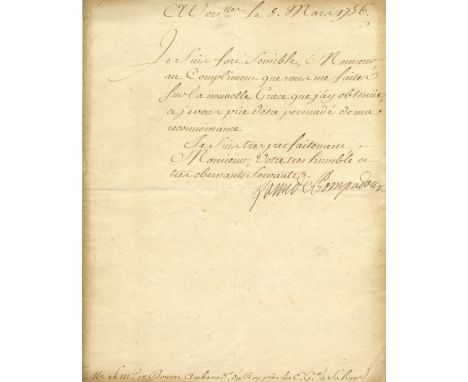 A Vers.lles le 8. Mars 1756.
Je Suis fort Sensible, Monsieur,
au Compliment que vous me faites
Sur la nouvelle Grace que j'ay obtenüe,
et je vous prie d'être persuadé de ma
reconnoissance.
Je Suis tres parfaitement
Monsieur, Votre tres humble et
tres obeissante Servante.
de Pompadour
Mr. de Bonnac Ambassad. du Roy près les